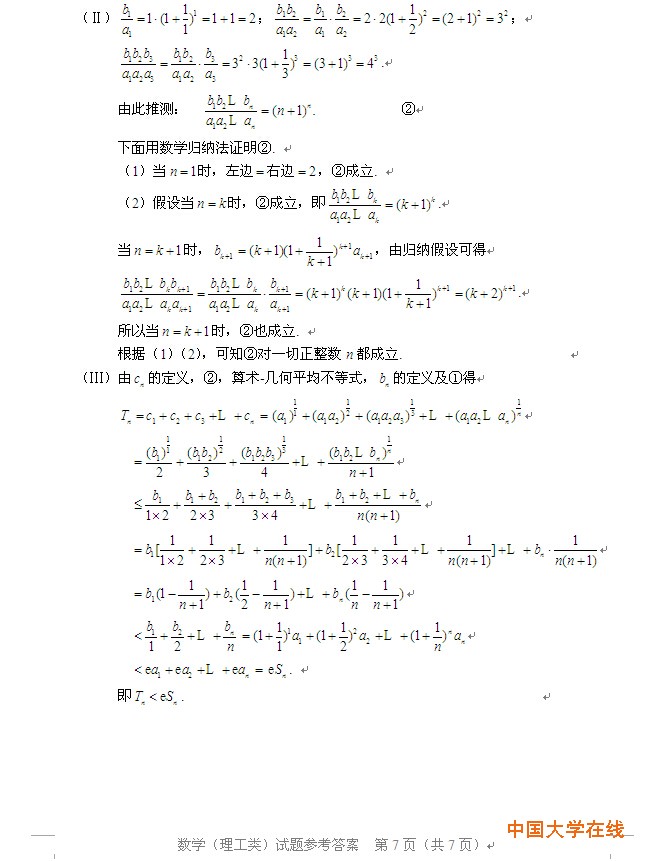 (Ⅱ) b₁/a₁=1·(1+1/1)¹=1+1=2; b₁b₂/a₁a₂=b₁/a₁·b₂/a₂=2·2(1+1/2)²=(2+1)²=3²;
b₁b₂b₃/a₁a₂a₃=b₁b₂/a₁a₂·b₃/a₃=3²·3(1+1/3)³=(3+1)³=4³.
由此推测: b₁b₂L bₙ/a₁a₂L aₙ=(n+1)ⁿ. ②
下面用数学归纳法证明②.
(1)当n=1时,左边=右边=2,②成立.
(2)假设当n=k时,②成立,即b₁b₂L bₖ/a₁a₂L aₖ=(k+1)ᵏ.
当n=k+1时,bₖ₊₁=(k+1)(1+1/(k+1))ᵏ⁺¹aₖ₊₁,由归纳假设可得
b₁b₂L bₖbₖ₊₁/a₁a₂L aₖaₖ₊₁=b₁b₂L bₖ/a₁a₂L aₖ·bₖ₊₁/aₖ₊₁=(k+1)ᵏ(k+1)(1+1/(k+1))ᵏ⁺¹=(k+2)ᵏ⁺¹.
所以当n=k+1时,②也成立.
根据(1)(2),可知②对一切正整数n都成立.
(III)由cₙ的定义,②,算术-几何平均不等式,bₙ的定义及①得
Tₙ=c₁+c₂+c₃+L +cₙ=(a₁)^(1/1)+(a₁a₂)^(1/2)+(a₁a₂a₃)^(1/3)+L +(a₁a₂L aₙ)^(1/n)
=(b₁)^(1/1)/2+(b₁b₂)^(1/2)/3+(b₁b₂b₃)^(1/3)/4+L +(b₁b₂L bₙ)^(1/n)/(n+1)
≤b₁/(1×2)+(b₁+b₂)/(2×3)+(b₁+b₂+b₃)/(3×4)+L +(b₁+b₂+L +bₙ)/(n(n+1))
=b₁[1/(1×2)+1/(2×3)+L +1/(n(n+1))]+b₂[1/(2×3)+1/(3×4)+L +1/(n(n+1))]+L +bₙ·1/(n(n+1))
=b₁(1-1/(n+1))+b₂(1/2-1/(n+1))+L +bₙ(1/n-1/(n+1))
<b₁/1+b₂/2+L +bₙ/n=(1+1/1)¹a₁+(1+1/2)²a₂+L +(1+1/n)ⁿaₙ
<ea₁+ea₂+L +eaₙ=eSₙ.
即Tₙ<eSₙ.
中国大学在线
数学(理工类)试题参考答案 第7页(共7页)